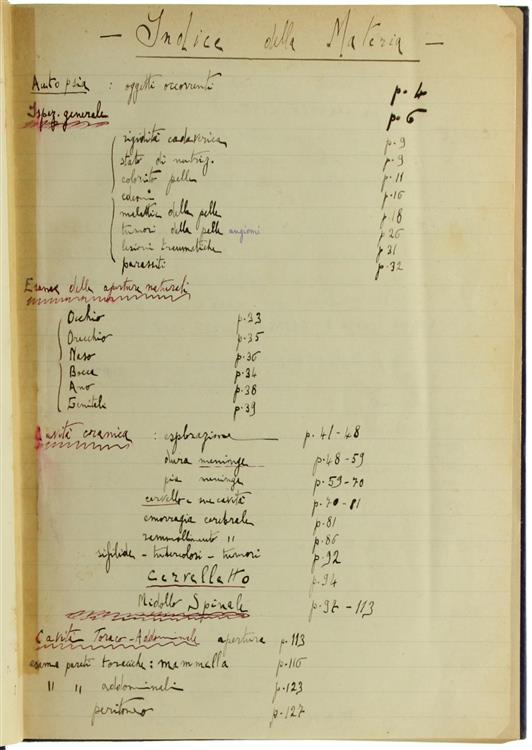 — Indice della Materia —
Autopsia : oggetti occorrenti p. 4
Ispez. generale p. 6
rigidità cadaverica p. 9
stato di nutriz. p. 9
colorito pelle p. 11
edemi p. 16
malattie della pelle p. 18
tumori della pelle angiomi p. 26
lesioni traumatiche p. 31
parassiti p. 32
Esame delle aperture naturali
Occhio p. 33
Orecchio p. 35
Naso p. 36
Bocca p. 34
Ano p. 38
Genitali p. 39
Cavità cranica : esplorazione p. 41-48
dura meninge p. 48-59
pia meninge p. 59-70
cervello e sue cavità p. 70-81
emorragia cerebrale p. 81
rammollimento " p. 86
sifilide - tubercolosi - tumori p. 92
Cervelletto p. 94
Midollo Spinale p. 97-113
Cavità Toraco-Addominale apertura p. 113
esame pareti toraciche : mammella p. 116
" " addominali p. 123
peritoneo p. 127